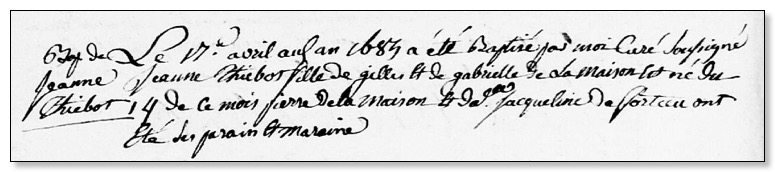 Bap. de Le 17e avril aud. an 1683 a été Baptisé par moi Curé Soussigné
Jeanne Jeanne Thiebot fille de gilles et de gabrielle de La maison est né du
Thiebot 14 de ce mois pierre de la maison et da.lle Jacqueline de
ont
été ses parain et maraine